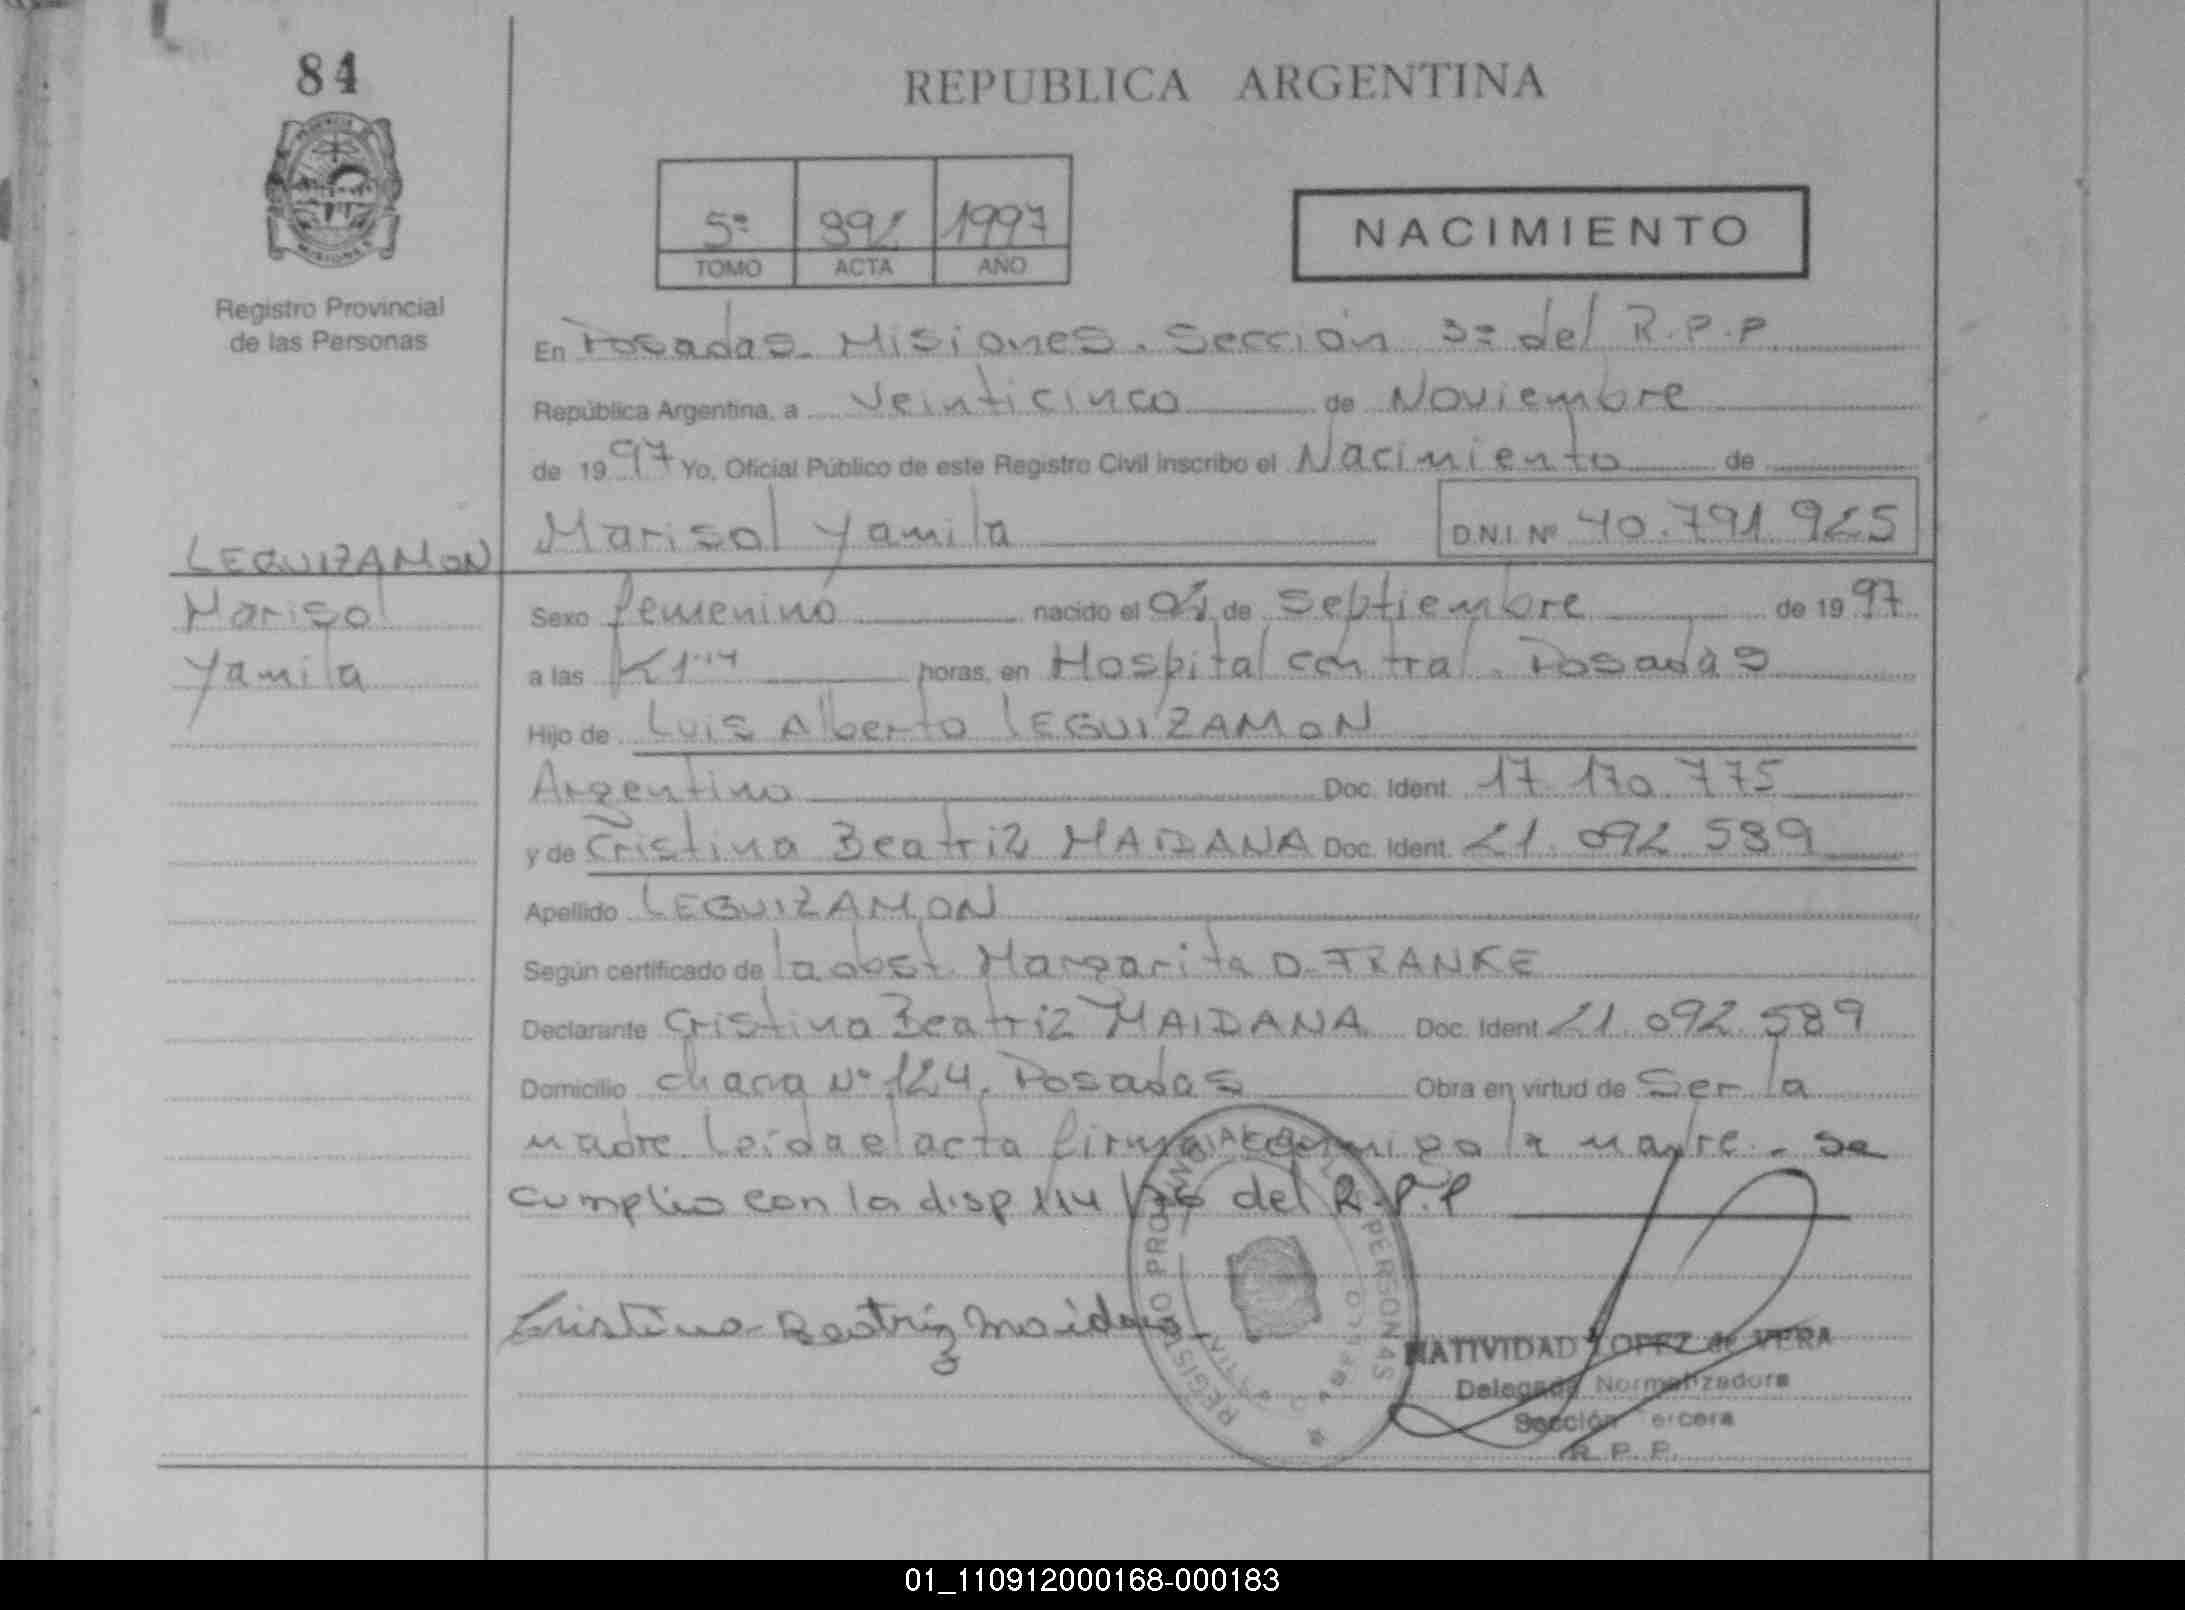 84
REPUBLICA ARGENTINA
PROVINCIA DE
MISIONES
Registro Provincial
de las Personas
5º 892 1997
TOMO ACTA AÑO
NACIMIENTO
En Posadas. Misiones. Sección 3º del R.P.P
República Argentina, a Veinticinco de Noviembre
de 1997 Yo, Oficial Público de este Registro Civil inscribo el Nacimiento de
Marisol Yamila D.N.I. Nº 40.791.925
LEGUIZAMON
Marisol
Yamila
Sexo femenino nacido el de Septiembre de 1997
a las horas, en Hospital central. Posadas
Hijo de Luis Alberto LEGUIZAMON
Argentino Doc. Ident. 17.170.775
y de Cristina Beatriz MAIDANA Doc. Ident. 21.092.589
Apellido LEGUIZAMON
Según certificado de la obst. Margarita D. FRANKE
Declarante Cristina Beatriz MAIDANA Doc. Ident. 21.092.589
Domicilio chacra Nº 124. Posadas Obra en virtud de Ser la
madre. Leída el acta firma conmigo la madre. - Se
cumplio con la disp 114/96 del R.P.P
Cristina Beatriz Maidana
REGISTRO PROVINCIAL DE LAS PERSONAS
NATIVIDAD LOPEZ de VERA
Delegada Normalizadora
Sección Tercera
R. P. P.
01_110912000168-000183